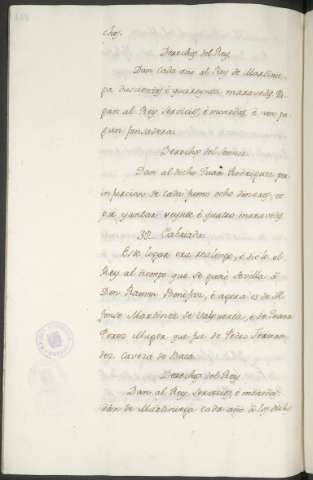 chos.
Derechos del Rey.
Dan cada año al Rey de Martinie-
ga doscientos é quarenta maravedis. Pa-
gan al Rey servicios, é monedas, é non pa-
gan fonsadera.
Derechos del Señor.
Dan al dicho Juan Rodriguez por
infurcion de cada fumo ocho dineros, et
por yantar veynte é quatro maravedis.
39. Cabriada.
Este logar era realengo, é diole el
Rey al tiempo que se ganó Sevilla á
Don Ramon Bonifaz, é agora es de Al-
fonso Martinez de Valpuesta, é de Juana
Perez Muger que fue de Pedro Fernan-
dez Cavesa de Baca.
Derechos del Rey.
Dan al Rey servicios, é monedas
dan de Martiniega cada año